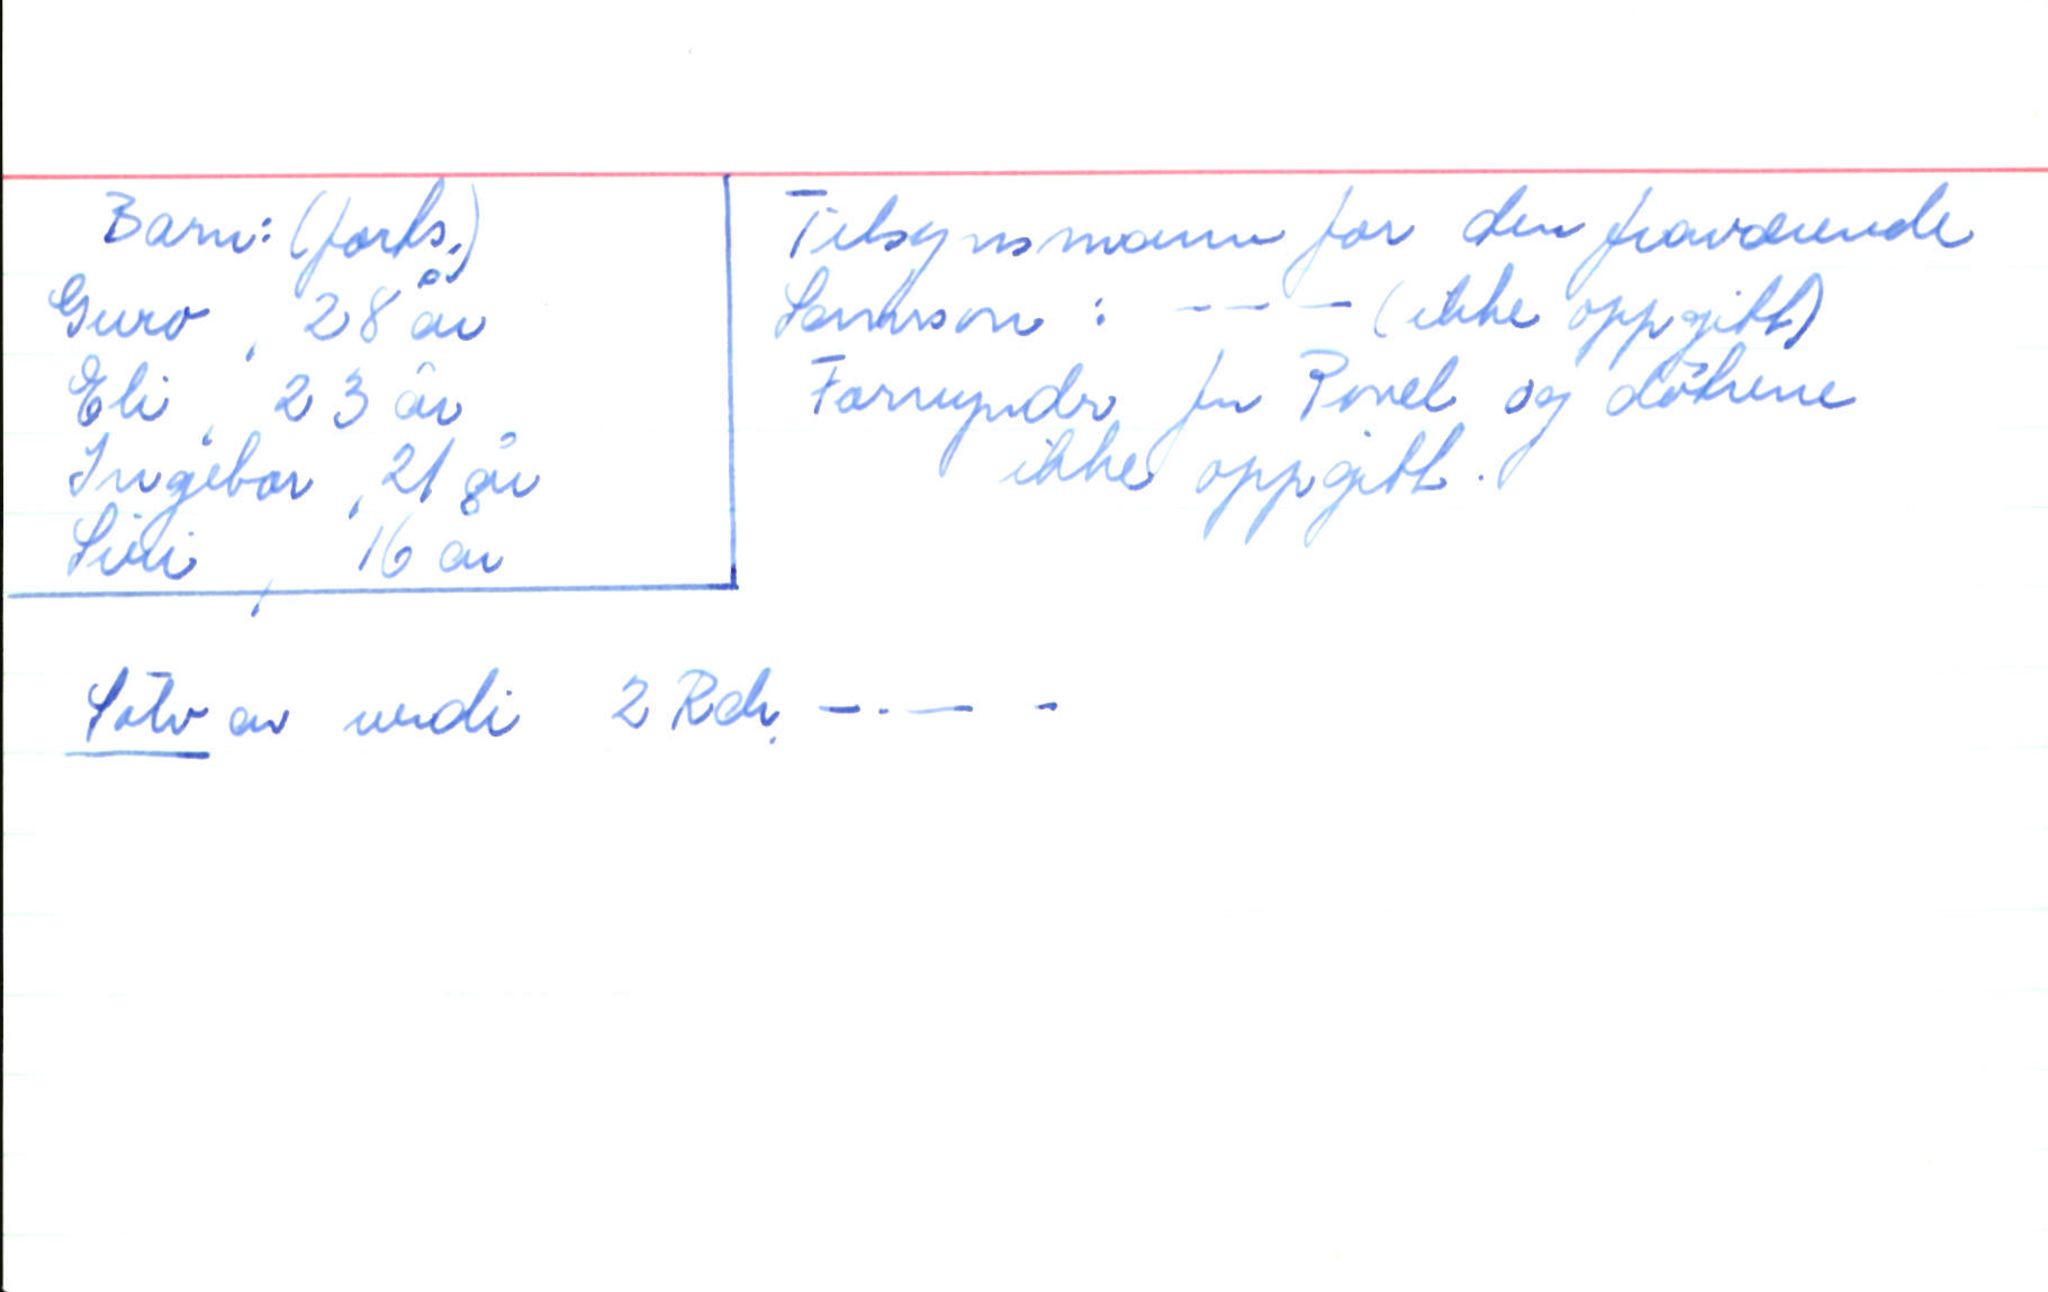 Barn: (forts.)
Guro, 28 år
Eli, 23 år
Ingebor, 21 år
Siri, 16 år
Tilsynsmann for den fraværende
Samson: --- (ikke oppgitt)
Formyndr for Povel og døtrene
ikke oppgitt.
Sölv av verdi 2 Rdr. -.- -